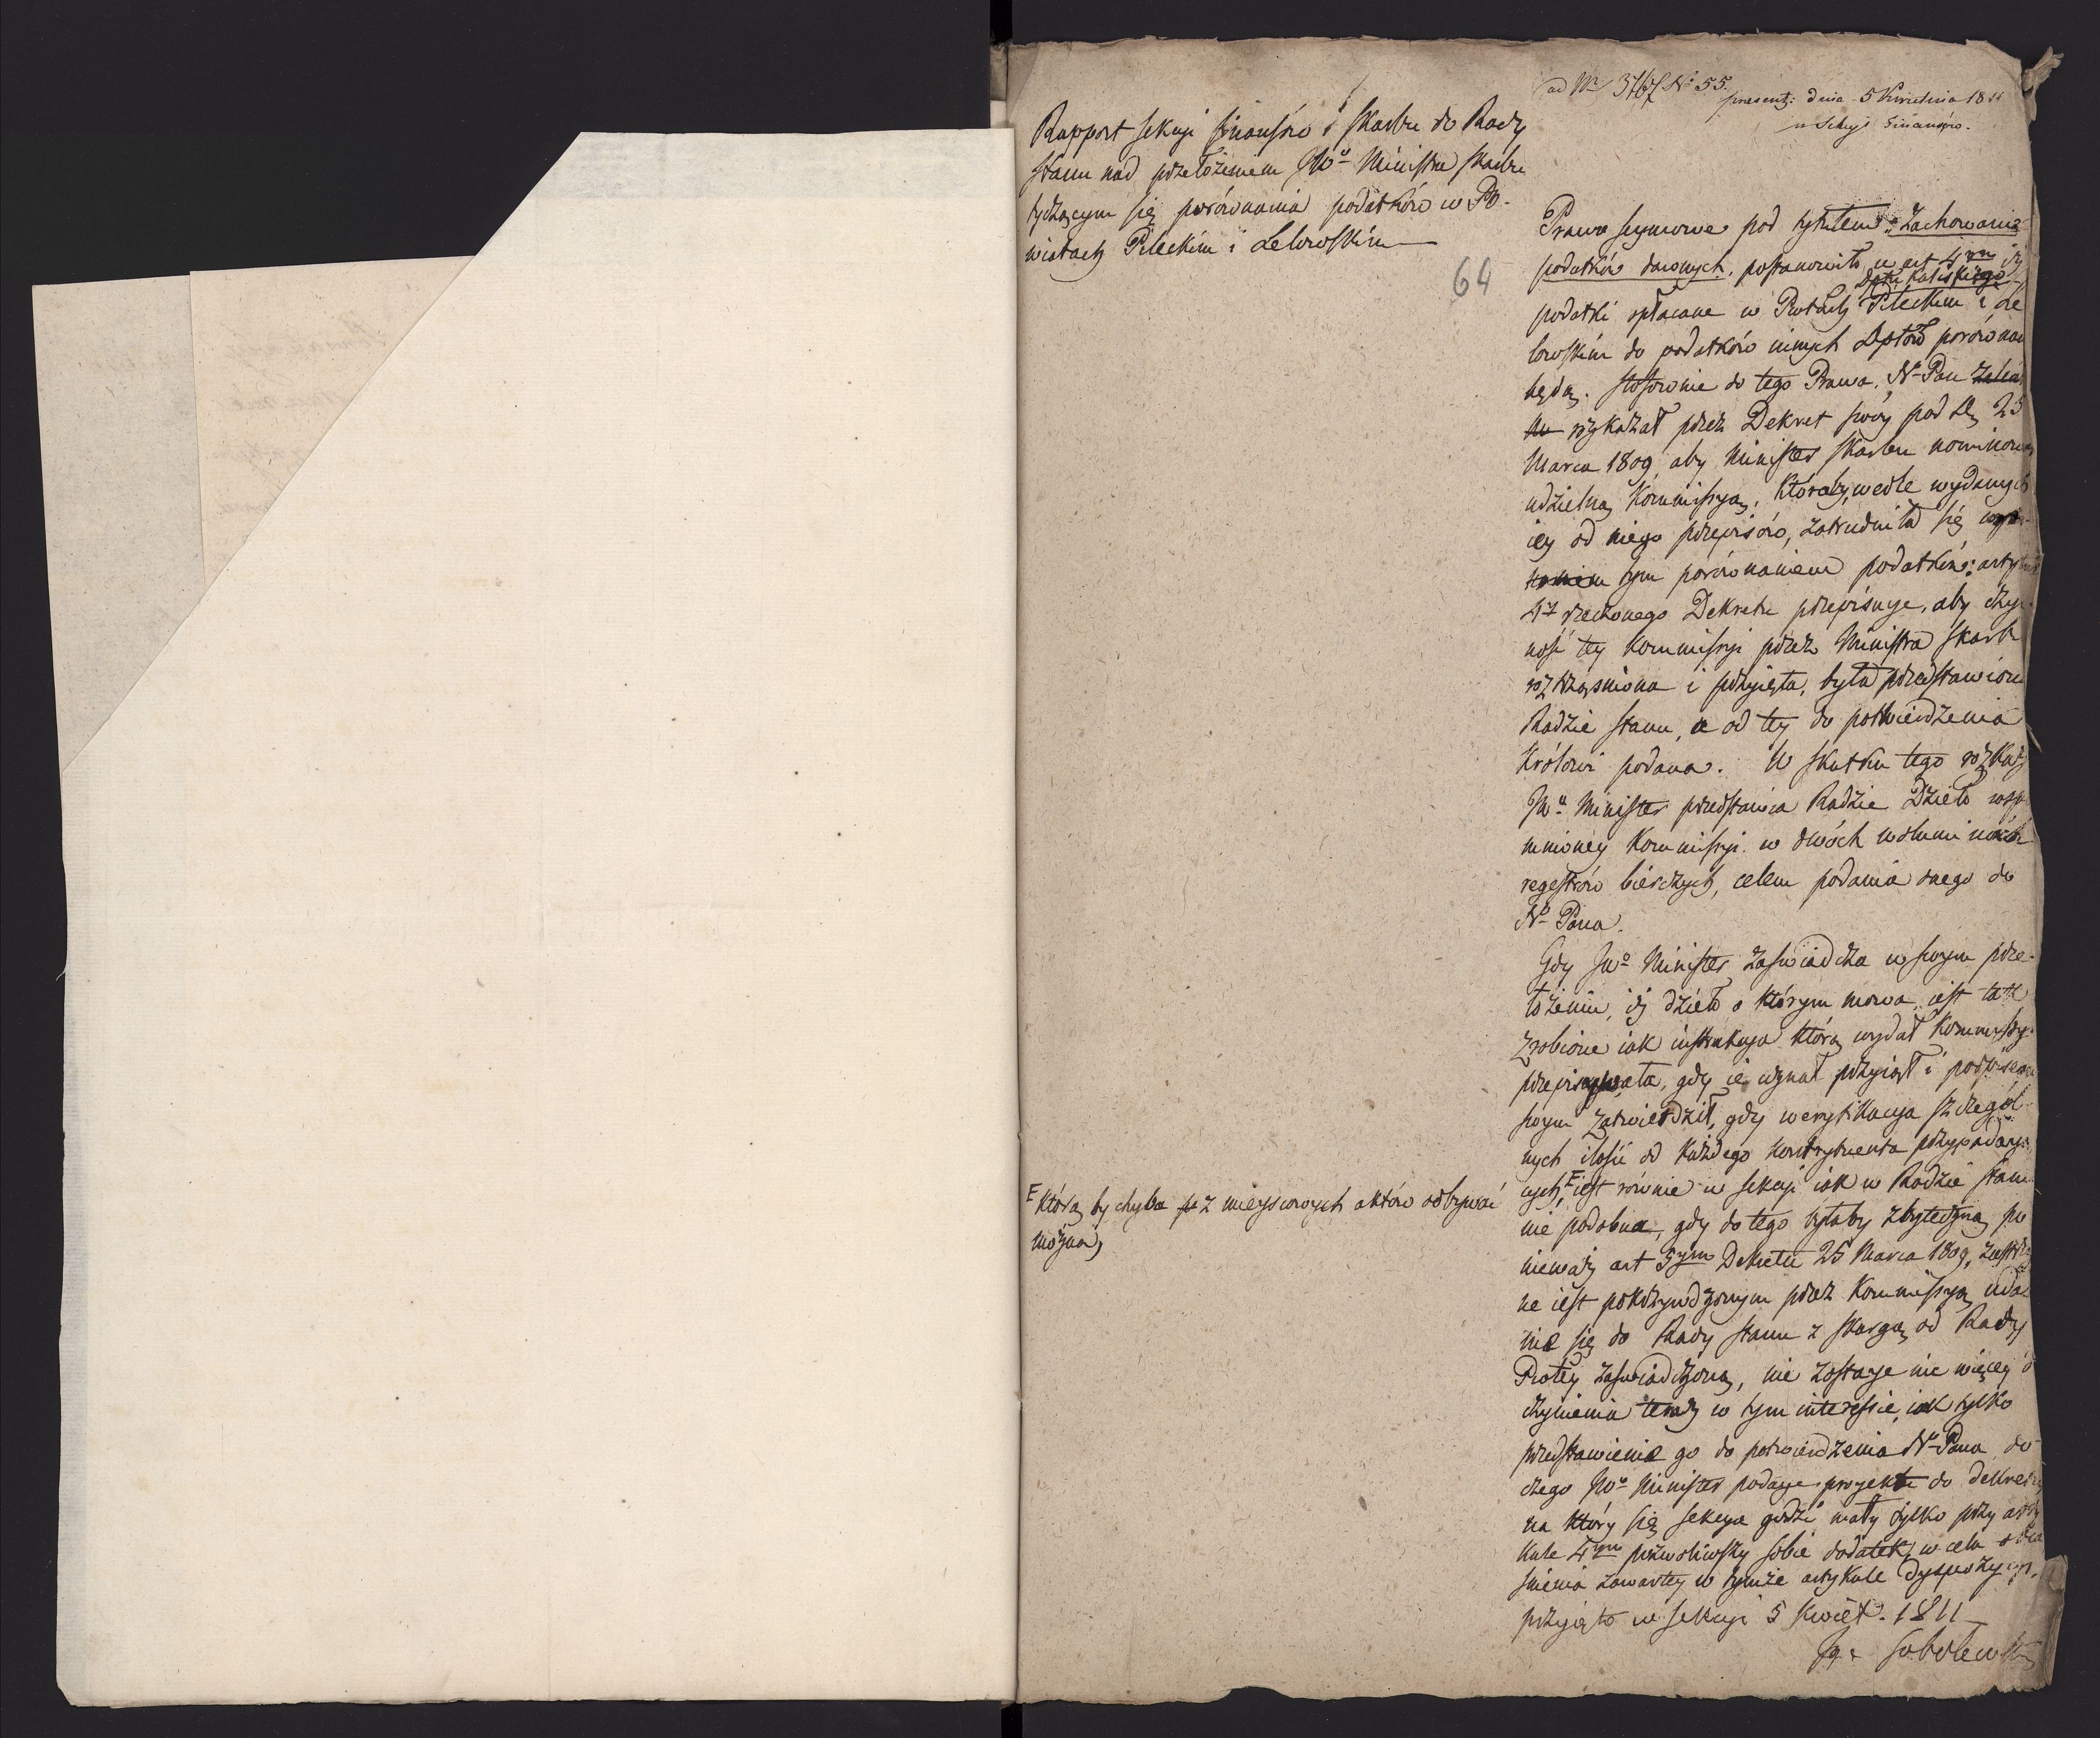 ad Nr 3767 No 55.
presentz: dnia 5 Kwietnia 1811
w Sekcyi Finansów.
Rapport Sekcyi finansów i Skarbu do Rady
Stanu nad przełożeniem JWo Ministra Skarbu
tyczącym się porównania podatków w Po-
wiatach Pileckim i Lelowskim
64
Prawo seymowe pod tytułem: Zachowanie
podatków dawnych, postanowiło w art 4ym iż
Dptu Kaliskiego
podatki opłacane w Powtach Pileckim i Le
lowskim do podatków innych Dptów porównane
będą. Stosownie do tego Prawa, N. Pan
rozkazał przez Dekret swóy pod d. 25
Marca 1809, aby Minister Skarbu nominował
udzielną Kommissyą, któraby, wedle wydanych
iey od niego przepisów, zatrudniła się
tym porównaniem podatków: artykuł
4y rzeczonego Dekretu przepisuje, aby czyn-
ność tey Kommissyi przez Ministra Skarbu
roztrząśniona i przyięta, była przedstawiona
Radzie Stanu, a od tey do potwierdzenia
Królowi podana. W skutku tego rozkazu
JWo Minister przedstawia Radzie Dzieło wspo
mnioney Kommissyi w dwóch woluminach
regestrów bierczych, celem podania onego do
No Pana.
Gdy JWo Minister zaświadcza w swym prze-
łożeniu, iż dzieło o którym mowa, iest tak
zrobione iak instrukcya którą wydał Kommissyi
przepisywała, gdy ie uznał przyiął i podpisem
swym zatwierdził, gdy weryfikacya szczegól-
nych ilości od każdego kontrybuenta przypadaią-
cych, F iest równie w Sekcyi iak w Radzie Stanu
F którą by chyba z mieyscowych aktów odbywać
można,
nie podobna, gdy do tego byłaby zbyteczną po
nieważ art 5ym Dekretu 25 Marca 1809, zastrzeżo
ne iest pokrzywdzonym przez Kommissyą uda-
nie się do Rady Stanu z skargą od Rady
Powtey zaświadczoną, nie zostaje nic więcey do
czynienia teraz w tym interessie, iak tylko
przedstawienie go do potwierdzenia No Pana, do
czego JWo Minister podaje projekt do dekretu,
na który się Sekcya godzi mały tylko przy arty
kule 4ym pozwoliwszy sobie dodatek, w celu obia
śnienia zawartey w tymże artykule dyspozycyi.
przyjęto w Sekcyi 5 Kwiet. 1811
Sobolewski